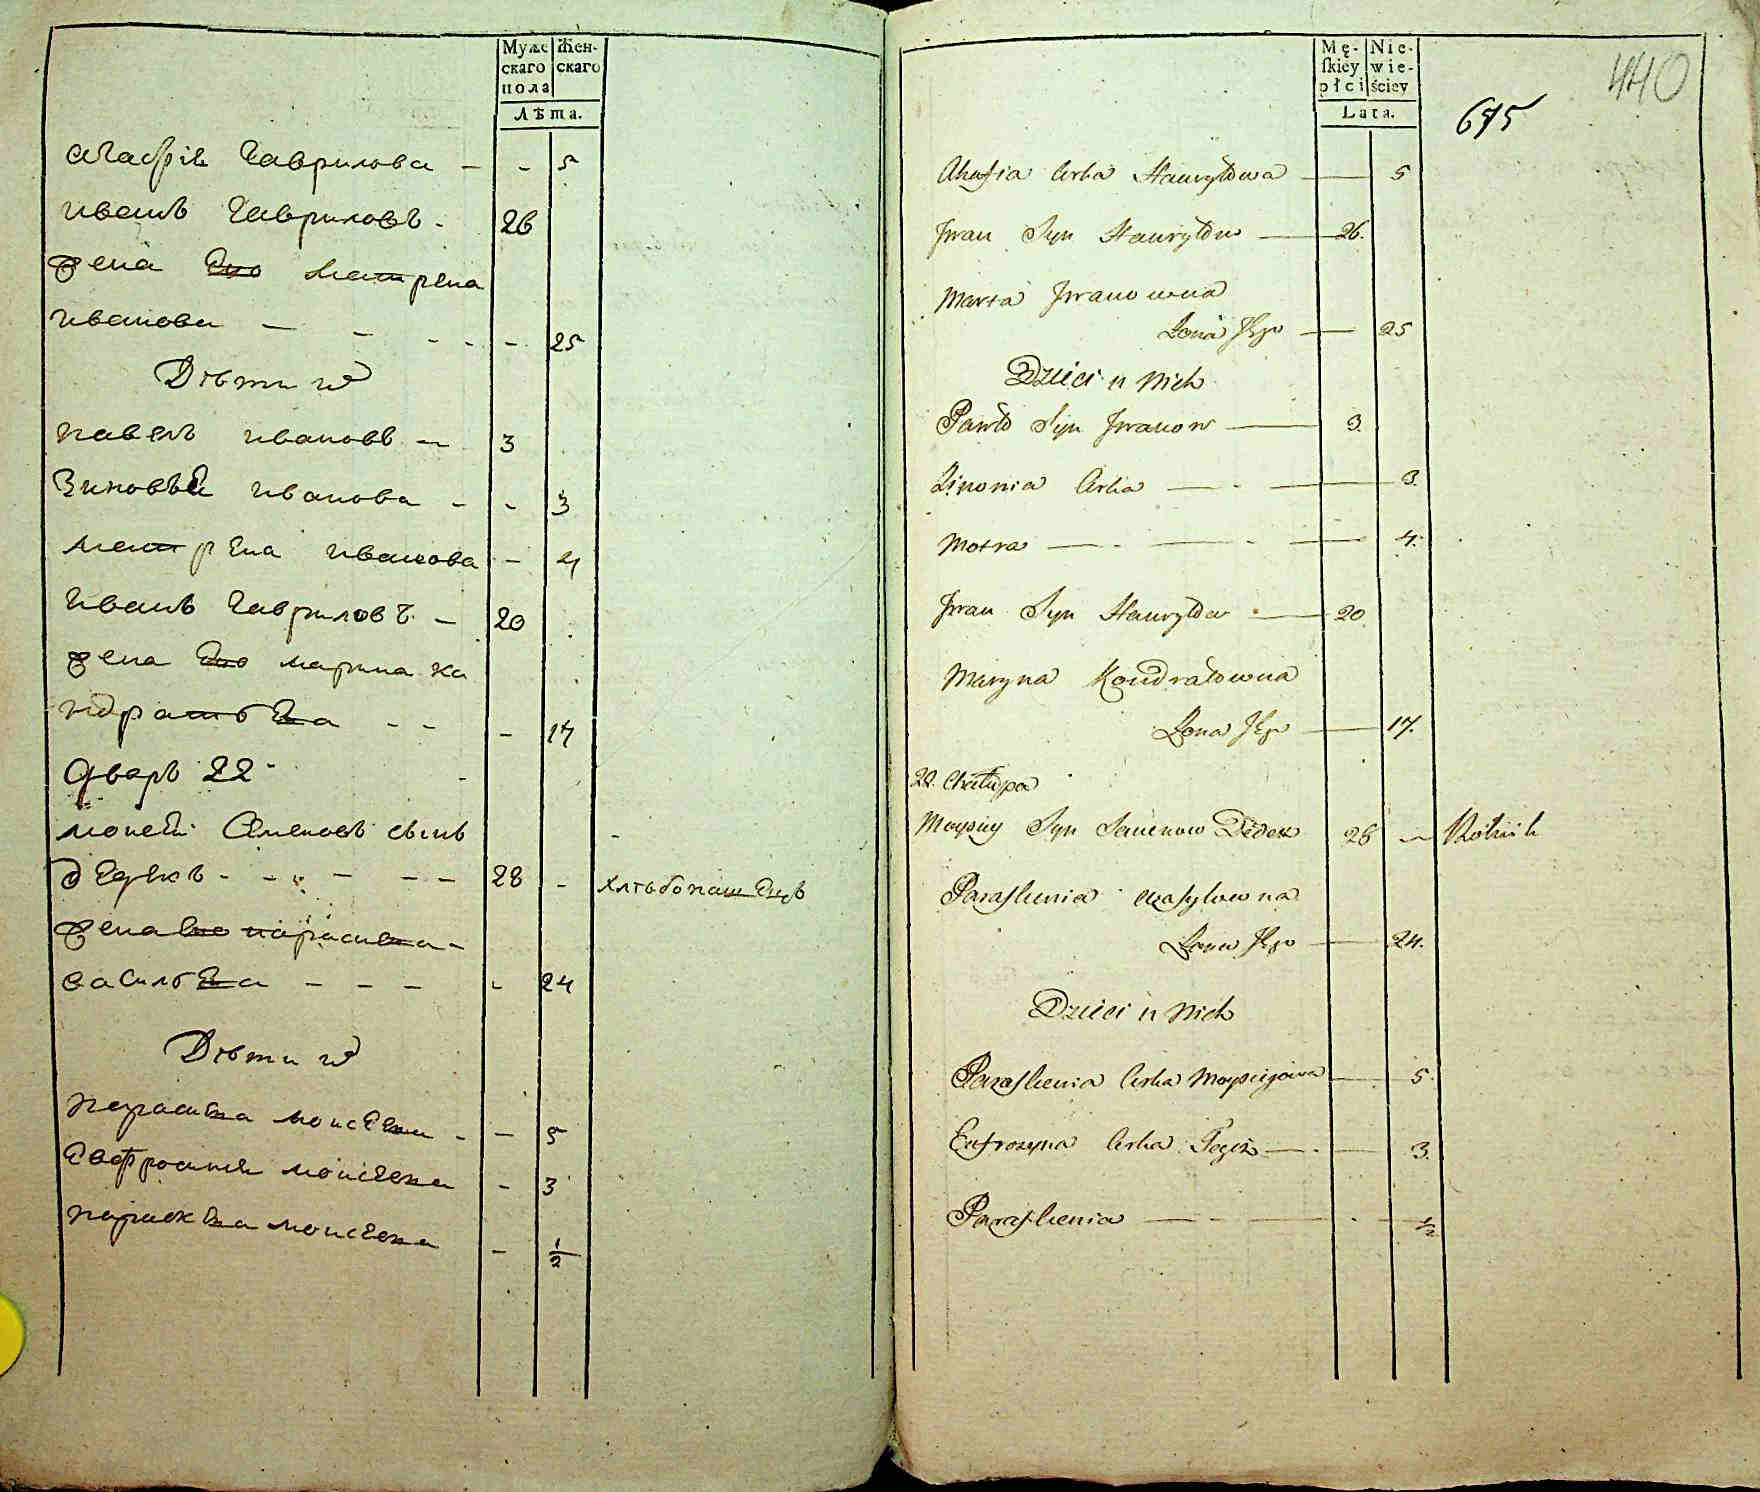 Муже
скаго
пола
Жен-
скаго
Лѣта.
Агафія Гаврилова - - 5
Иванъ Гавриловъ - 26
жена Его Матрена
Иванова - - - - - 25
Дѣти ихъ
Павелъ Ивановъ - 3
Зиновья Иванова - - 3
Матрена Иванова - 4
Иванъ Гавриловъ - 20
жена Его Марина Ка
ндратьева - - - 17
Дваръ 22
Мойсей Семеновъ сынъ
Дедекъ - - - - - 28 - хлѣбопашецъ
жена Его Параскева -
Васильева - - - - 24
Дѣти ихъ
Параскева Моисеева - - 5
Евфросинія Моисеева - 3
Параскева Моисеева - 1/2
Mę-
skiey
płci
Nie-
wie-
ściey
Lata.
440
675
Ahafia Corka Hawryłowa — 5
Jwan Syn Hawryłow — 26.
Marta Jwanowna
Żona Jego — 25
Dzieci u Nich
Pawło Syn Jwanow — 3.
Zinonia Corka — - — 3.
Motra — - — - — 4.
Jwan Syn Hawryłow — 20.
Maryna Kondratowna
Żona Jego — 17.
22. Chałupa
Moysiey Syn Semenow Dedek 28 — Rolnik
Paraskewia Wasylowna
Żona Jego — 24.
Dzieci u Nich
Paraskewia Corka Moysiejowa — 5.
Eufrozyna Corka Tegoż — - — 3.
Paraskewia — - — - — 1/2